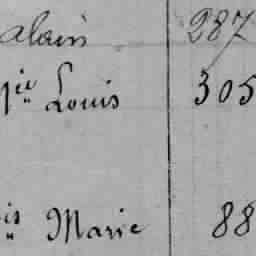 Alain 287
Louis 305
Marie 88